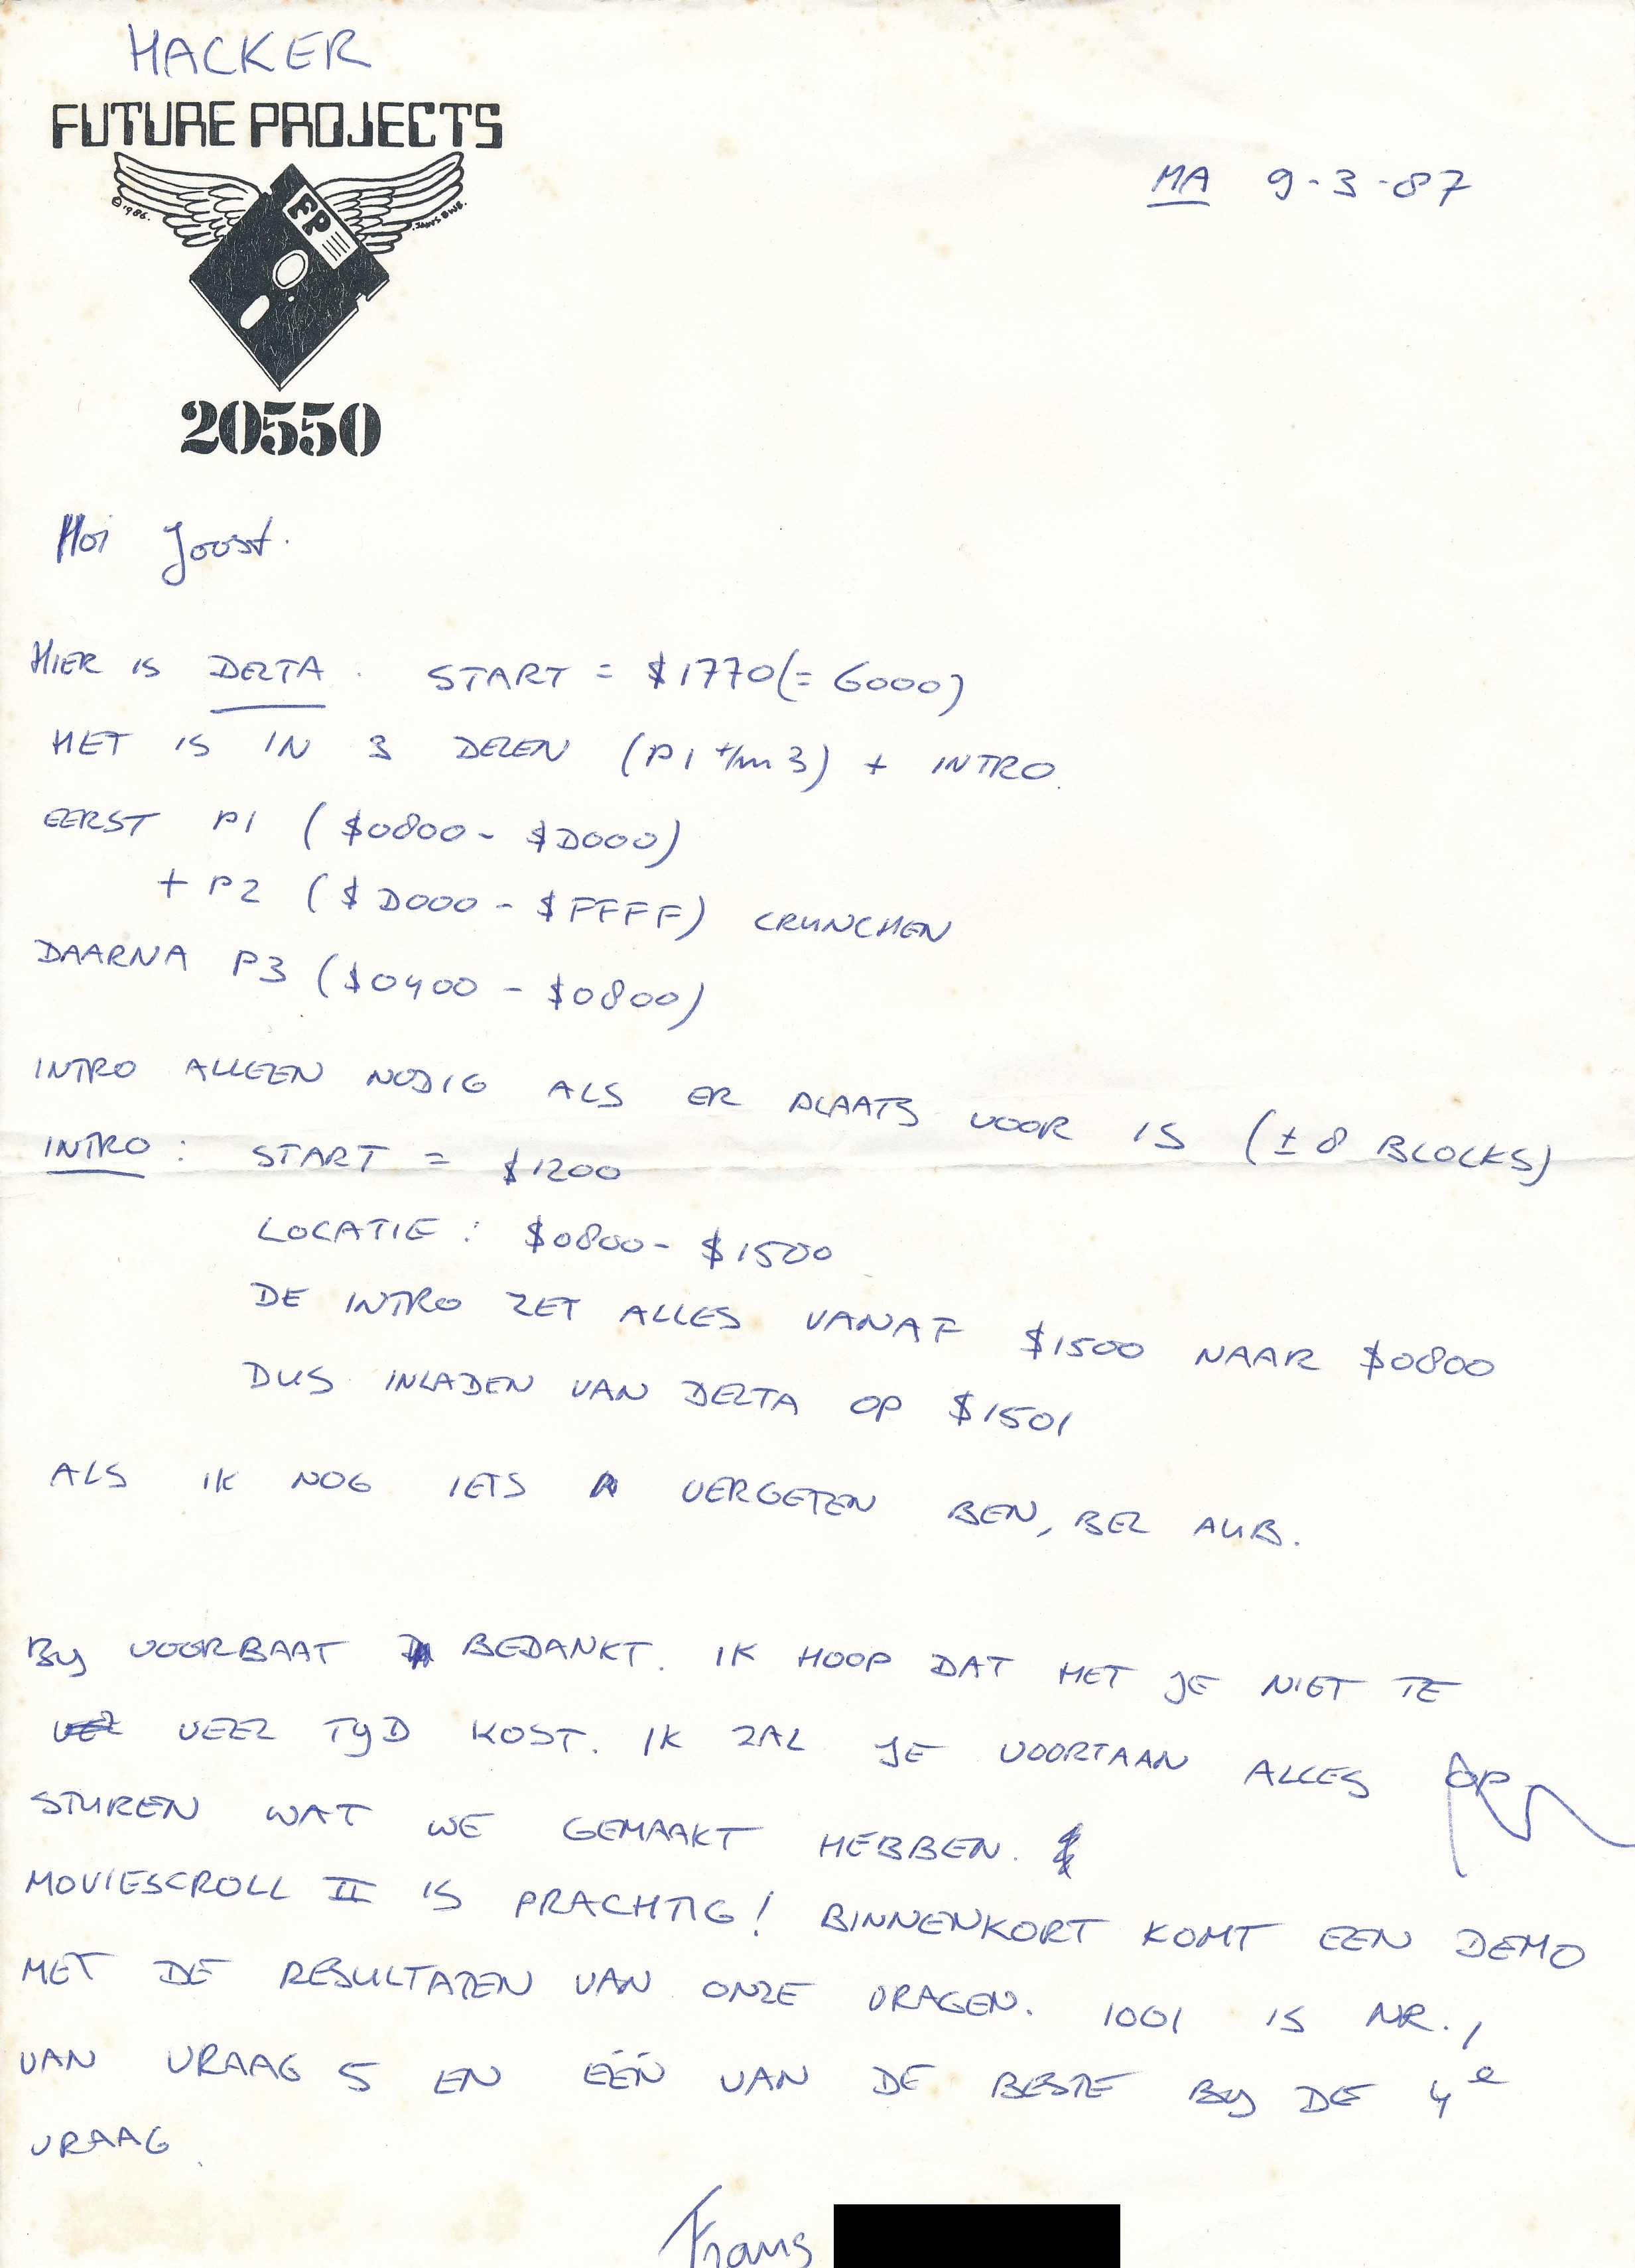 HACKER
FUTURE PROJECTS
MA 9-3-87
© 1986.
FP
20550
Hoi Joost.
HIER IS DELTA. START = $1770 (= 6000)
HET IS IN 3 DELEN (P1 t/m 3) + INTRO.
EERST P1 ($0800 - $D000)
+ P2 ($D000 - $FFFF) CRUNCHEN
DAARNA P3 ($0400 - $0800)
INTRO ALLEEN NODIG ALS ER PLAATS VOOR IS (± 8 BLOCKS)
INTRO: START = $1200
LOCATIE: $0800 - $1500
DE INTRO ZET ALLES VANAF $1500 NAAR $0800
DUS INLADEN VAN DELTA OP $1501
ALS IK NOG IETS VERGETEN BEN, BEL AUB.
BIJ VOORBAAT BEDANKT. IK HOOP DAT HET JE NIET TE
VEEL TIJD KOST. IK ZAL JE VOORTAAN ALLES OP
STUREN WAT WE GEMAAKT HEBBEN.
MOVIESCROLL II IS PRACHTIG! BINNENKORT KOMT EEN DEMO
MET DE RESULTATEN VAN ONZE VRAGEN. 1001 IS NR. 1
VAN VRAAG 5 EN ÉÉN VAN DE BESTE BIJ DE 4e
VRAAG.
Frans